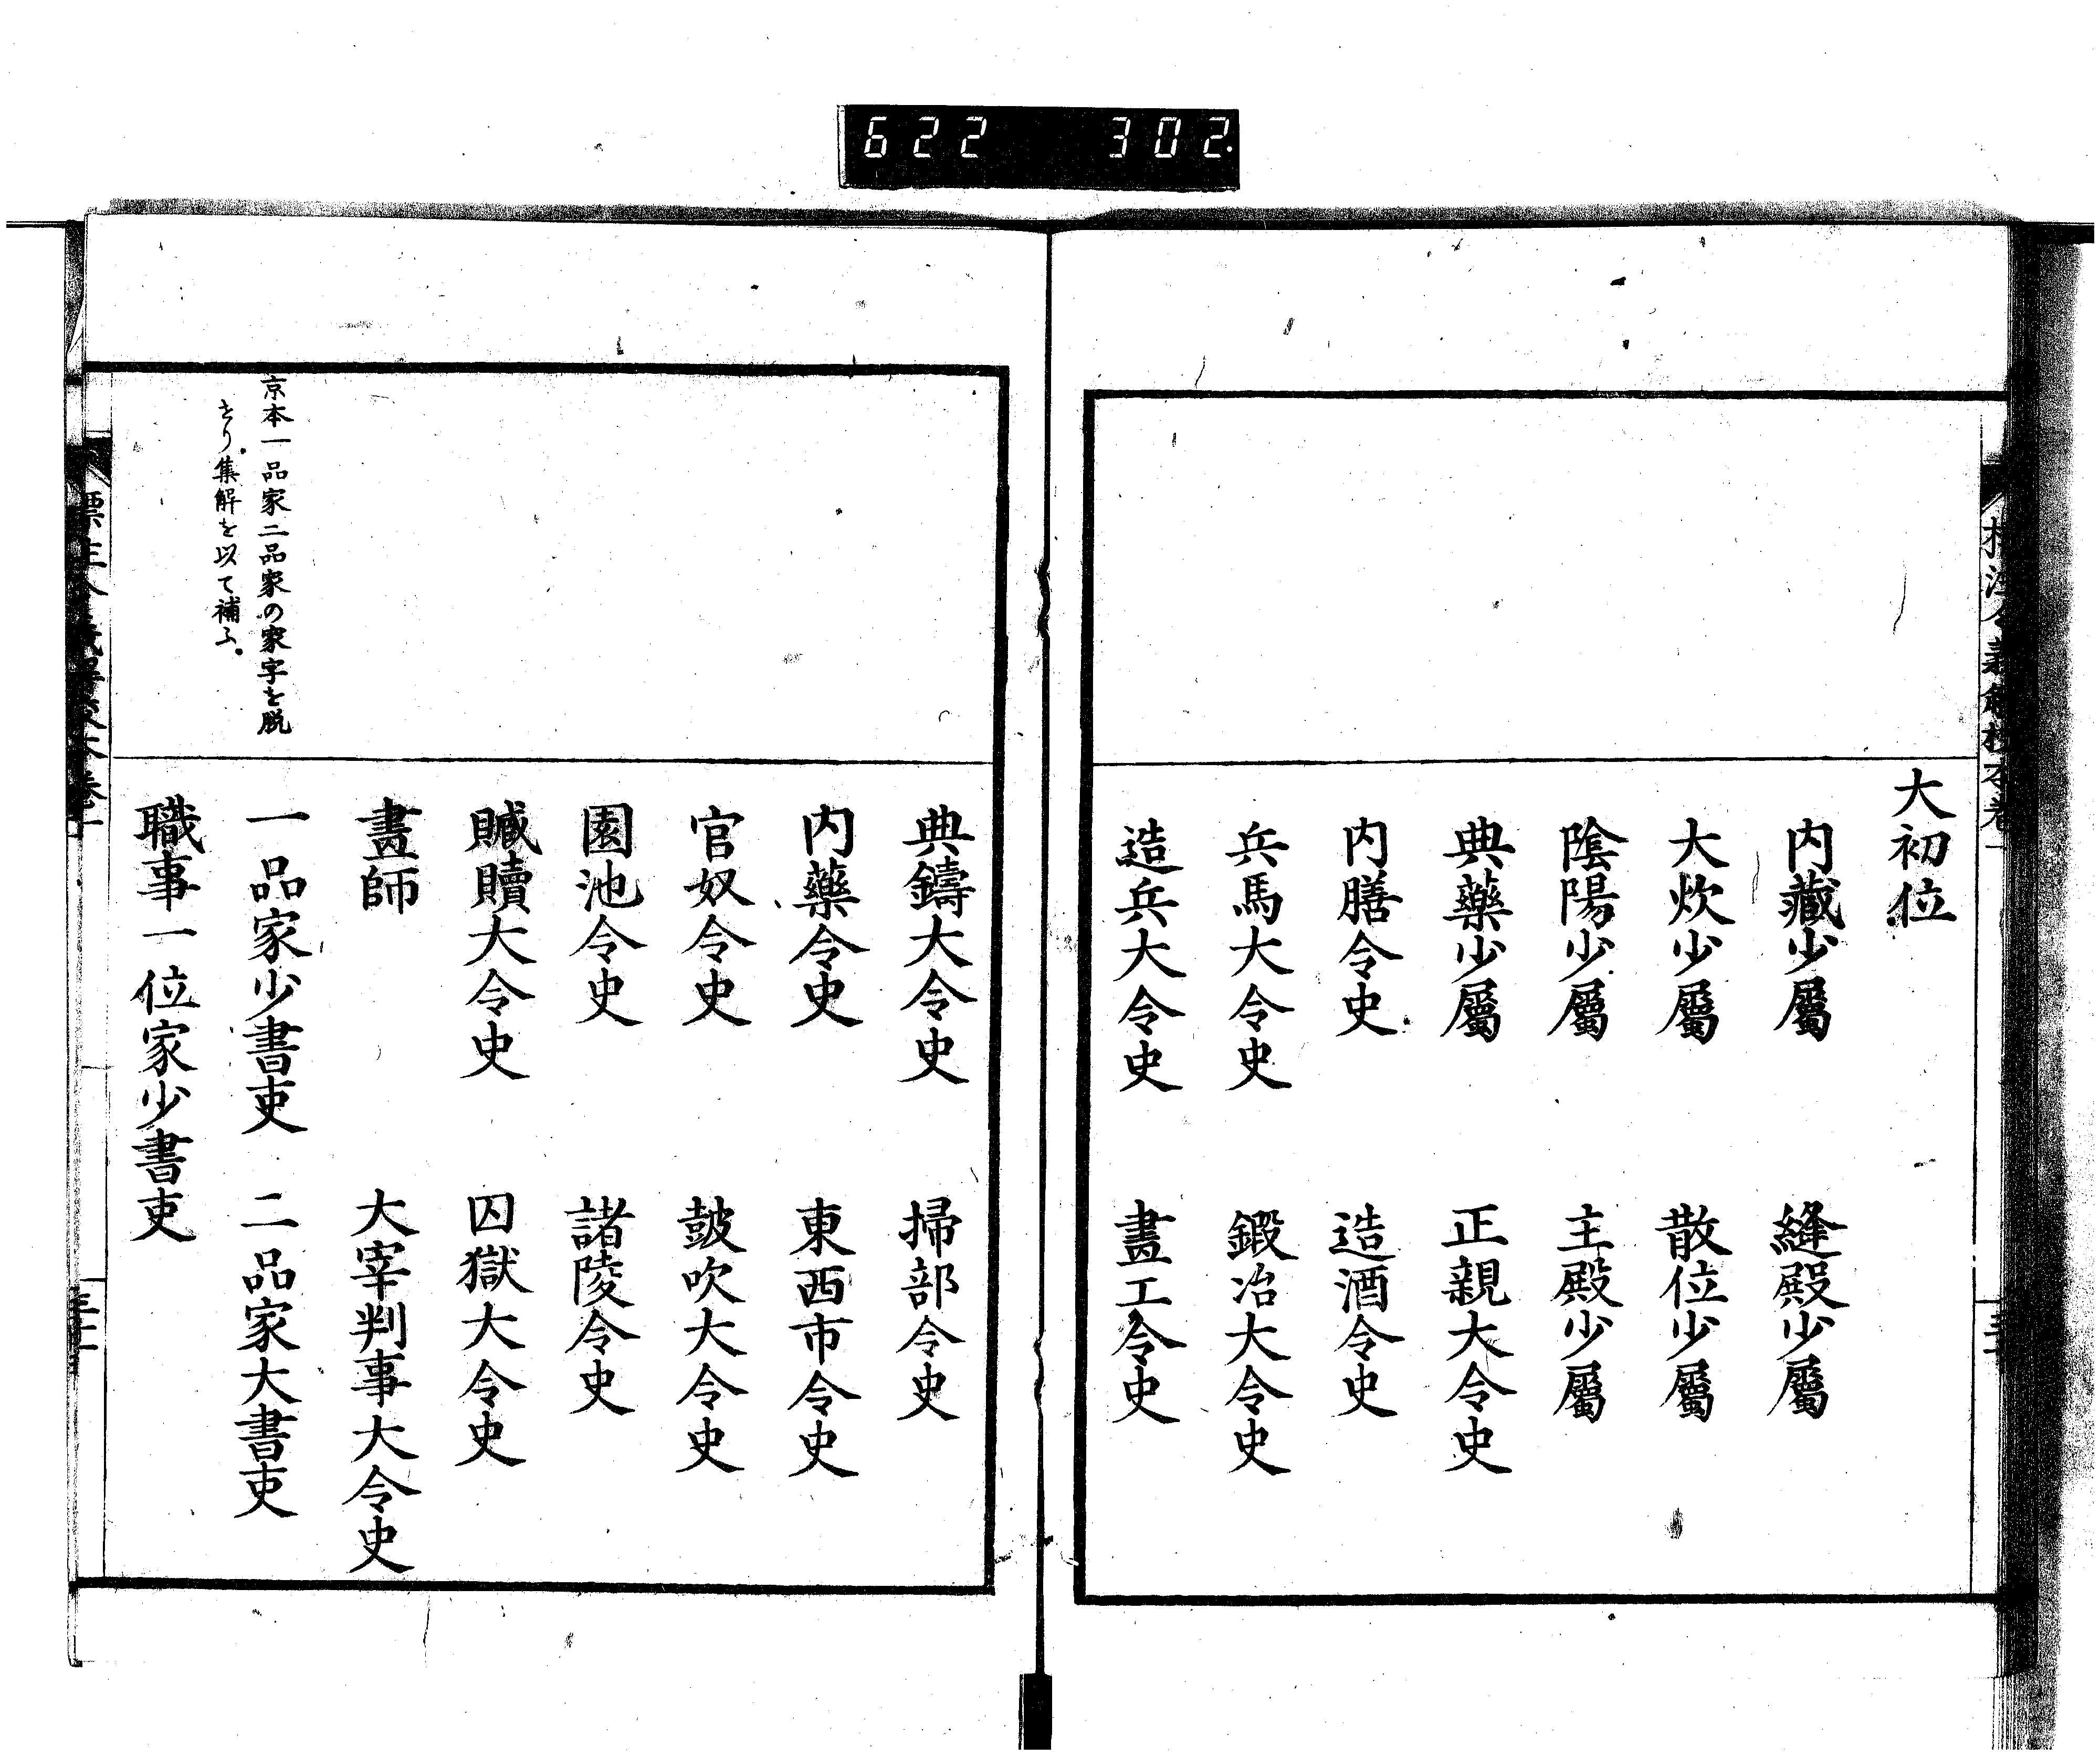 622 302
大初位
内藏少屬 縫殿少屬
大炊少屬 散位少屬
陰陽少屬 主殿少屬
典藥少屬 正親大令史
内膳令史 造酒令史
兵馬大令史 鍛冶大令史
造兵大令史 畫工令史
典鑄大令史 掃部令史
内藥令史 東西市令史
官奴令史 皷吹大令史
園池令史 諸陵令史
贓贖大令史 囚獄大令史
畫師 大宰判事大令史
京本一品家二品家の家字を脱
せり。集解を以て補ふ。
一品家少書吏 二品家大書吏
職事一位家少書吏